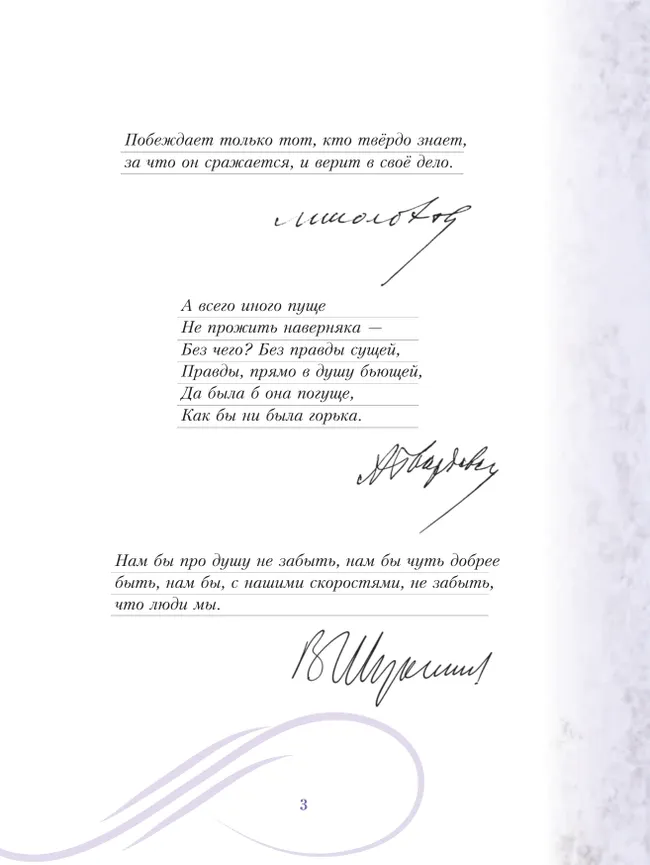 Побеждает только тот, кто твёрдо знает,
за что он сражается, и верит в своё дело.
МШолохов
А всего иного пуще
Не прожить наверняка —
Без чего? Без правды сущей,
Правды, прямо в душу бьющей,
Да была б она погуще,
Как бы ни была горька.
АТвардовский
Нам бы про душу не забыть, нам бы чуть добрее
быть, нам бы, с нашими скоростями, не забыть,
что люди мы.
ВШукшин
3